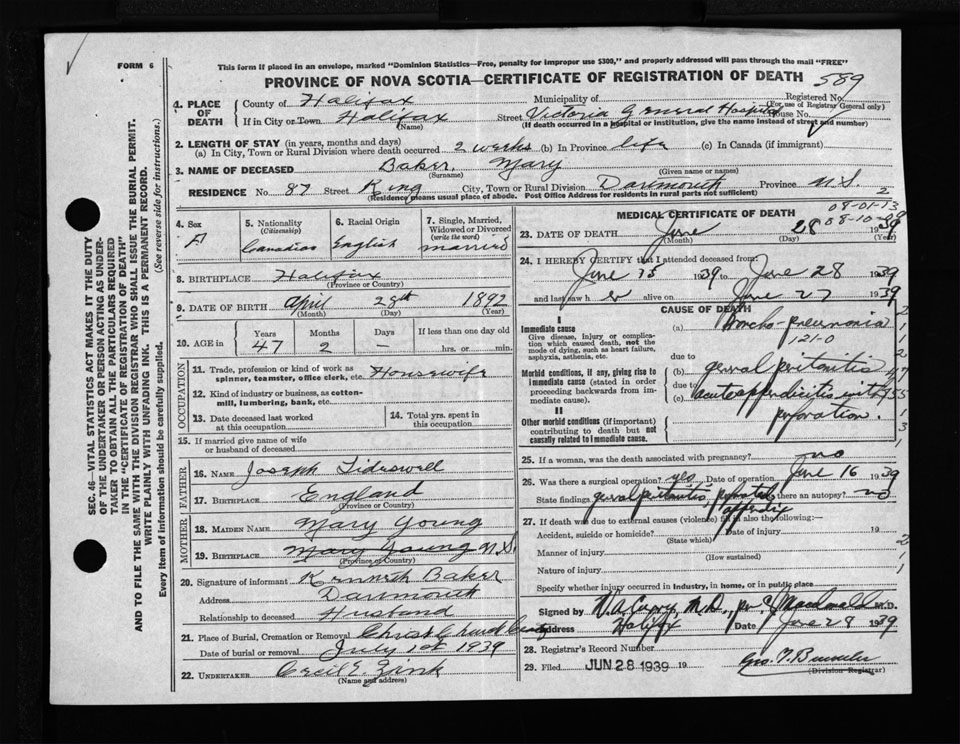 FORM 6
This form if placed in an envelope, marked "Dominion Statistics—Free, penalty for improper use $300," and properly addressed will pass through the mail "FREE"
PROVINCE OF NOVA SCOTIA—CERTIFICATE OF REGISTRATION OF DEATH
589
Registered No.
(For use of Registrar General only)
1. PLACE OF DEATH
County of Halifax Municipality of
If in City or Town Halifax Street Victoria General Hospital House No.
(Name) (If death occurred in a hospital or institution, give the name instead of street and number)
2. LENGTH OF STAY (in years, months and days)
(a) In City, Town or Rural Division where death occurred 2 weeks (b) In Province life (c) In Canada (if immigrant)
3. NAME OF DECEASED Baker, Mary
(Surname) (Given name or names)
RESIDENCE No. 87 Street King City, Town or Rural Division Dartmouth Province N.S. 2
(Residence means usual place of abode. Post Office Address for residents in rural parts not sufficient)
4. Sex
F
5. Nationality (Citizenship)
Canadian
6. Racial Origin
English
7. Single, Married, Widowed or Divorced (write the word)
married
8. BIRTHPLACE Halifax
(Province or Country)
9. DATE OF BIRTH April 28th 1892
(Month) (Day) (Year)
10. AGE in
Years Months Days If less than one day old
47 2 – hrs. or min.
OCCUPATION
11. Trade, profession or kind of work as spinner, teamster, office clerk, etc. Housewife
12. Kind of industry or business, as cotton-mill, lumbering, bank, etc.
13. Date deceased last worked at this occupation
14. Total yrs. spent in this occupation
15. If married give name of wife or husband of deceased
FATHER
16. Name Joseph Tideswell
17. Birthplace England
(Province or Country)
MOTHER
18. Maiden Name Mary Young
19. Birthplace Mary Young N.S.
(Province or Country)
20. Signature of informant Kenneth Baker
Address Dartmouth
Relationship to deceased Husband
21. Place of Burial, Cremation or Removal Christ Church
Date of burial or removal July 1st 1939
22. UNDERTAKER Cecil E. Zink
(Name and address)
MEDICAL CERTIFICATE OF DEATH
08-01-13
08-10-
23. DATE OF DEATH June 28 1939
(Month) (Day) (Year)
24. I HEREBY CERTIFY that I attended deceased from:
June 15 1939 to June 28 1939
and last saw her alive on June 27 1939
CAUSE OF DEATH
I
Immediate cause
Give disease, injury or complication which caused death, not the mode of dying, such as heart failure, asphyxia, asthenia, etc.
(a) Broncho-pneumonia
121-0
due to
Morbid conditions, if any, giving rise to immediate cause (stated in order proceeding backwards from immediate cause).
(b) general peritonitis
due to
(c) acute appendicitis with perforation.
II
Other morbid conditions (if important) contributing to death but not causally related to immediate cause.
25. If a woman, was the death associated with pregnancy? no
26. Was there a surgical operation? yes Date of operation June 16 1939
State findings general peritonitis ruptured appendix Was there an autopsy? no
27. If death was due to external causes (violence) fill in also the following:—
Accident, suicide or homicide? Date of injury 19
(State which)
Manner of injury
(How sustained)
Nature of injury
Specify whether injury occurred in industry, in home, or in public place
Signed by M.D., per Macdonald M.D.
Address Halifax Date June 28 1939
28. Registrar's Record Number
29. Filed JUN 28 1939 19
(Division Registrar)
SEC. 46—VITAL STATISTICS ACT MAKES IT THE DUTY
OF THE UNDERTAKER OR PERSON ACTING AS UNDERTAKER
TO OBTAIN ALL THE PARTICULARS REQUIRED
IN THE "CERTIFICATE OF REGISTRATION OF DEATH"
AND TO FILE THE SAME WITH THE DIVISION REGISTRAR WHO SHALL ISSUE THE BURIAL PERMIT.
WRITE PLAINLY WITH UNFADING INK. THIS IS A PERMANENT RECORD.
Every item of information should be carefully supplied. (See reverse side for instructions.)